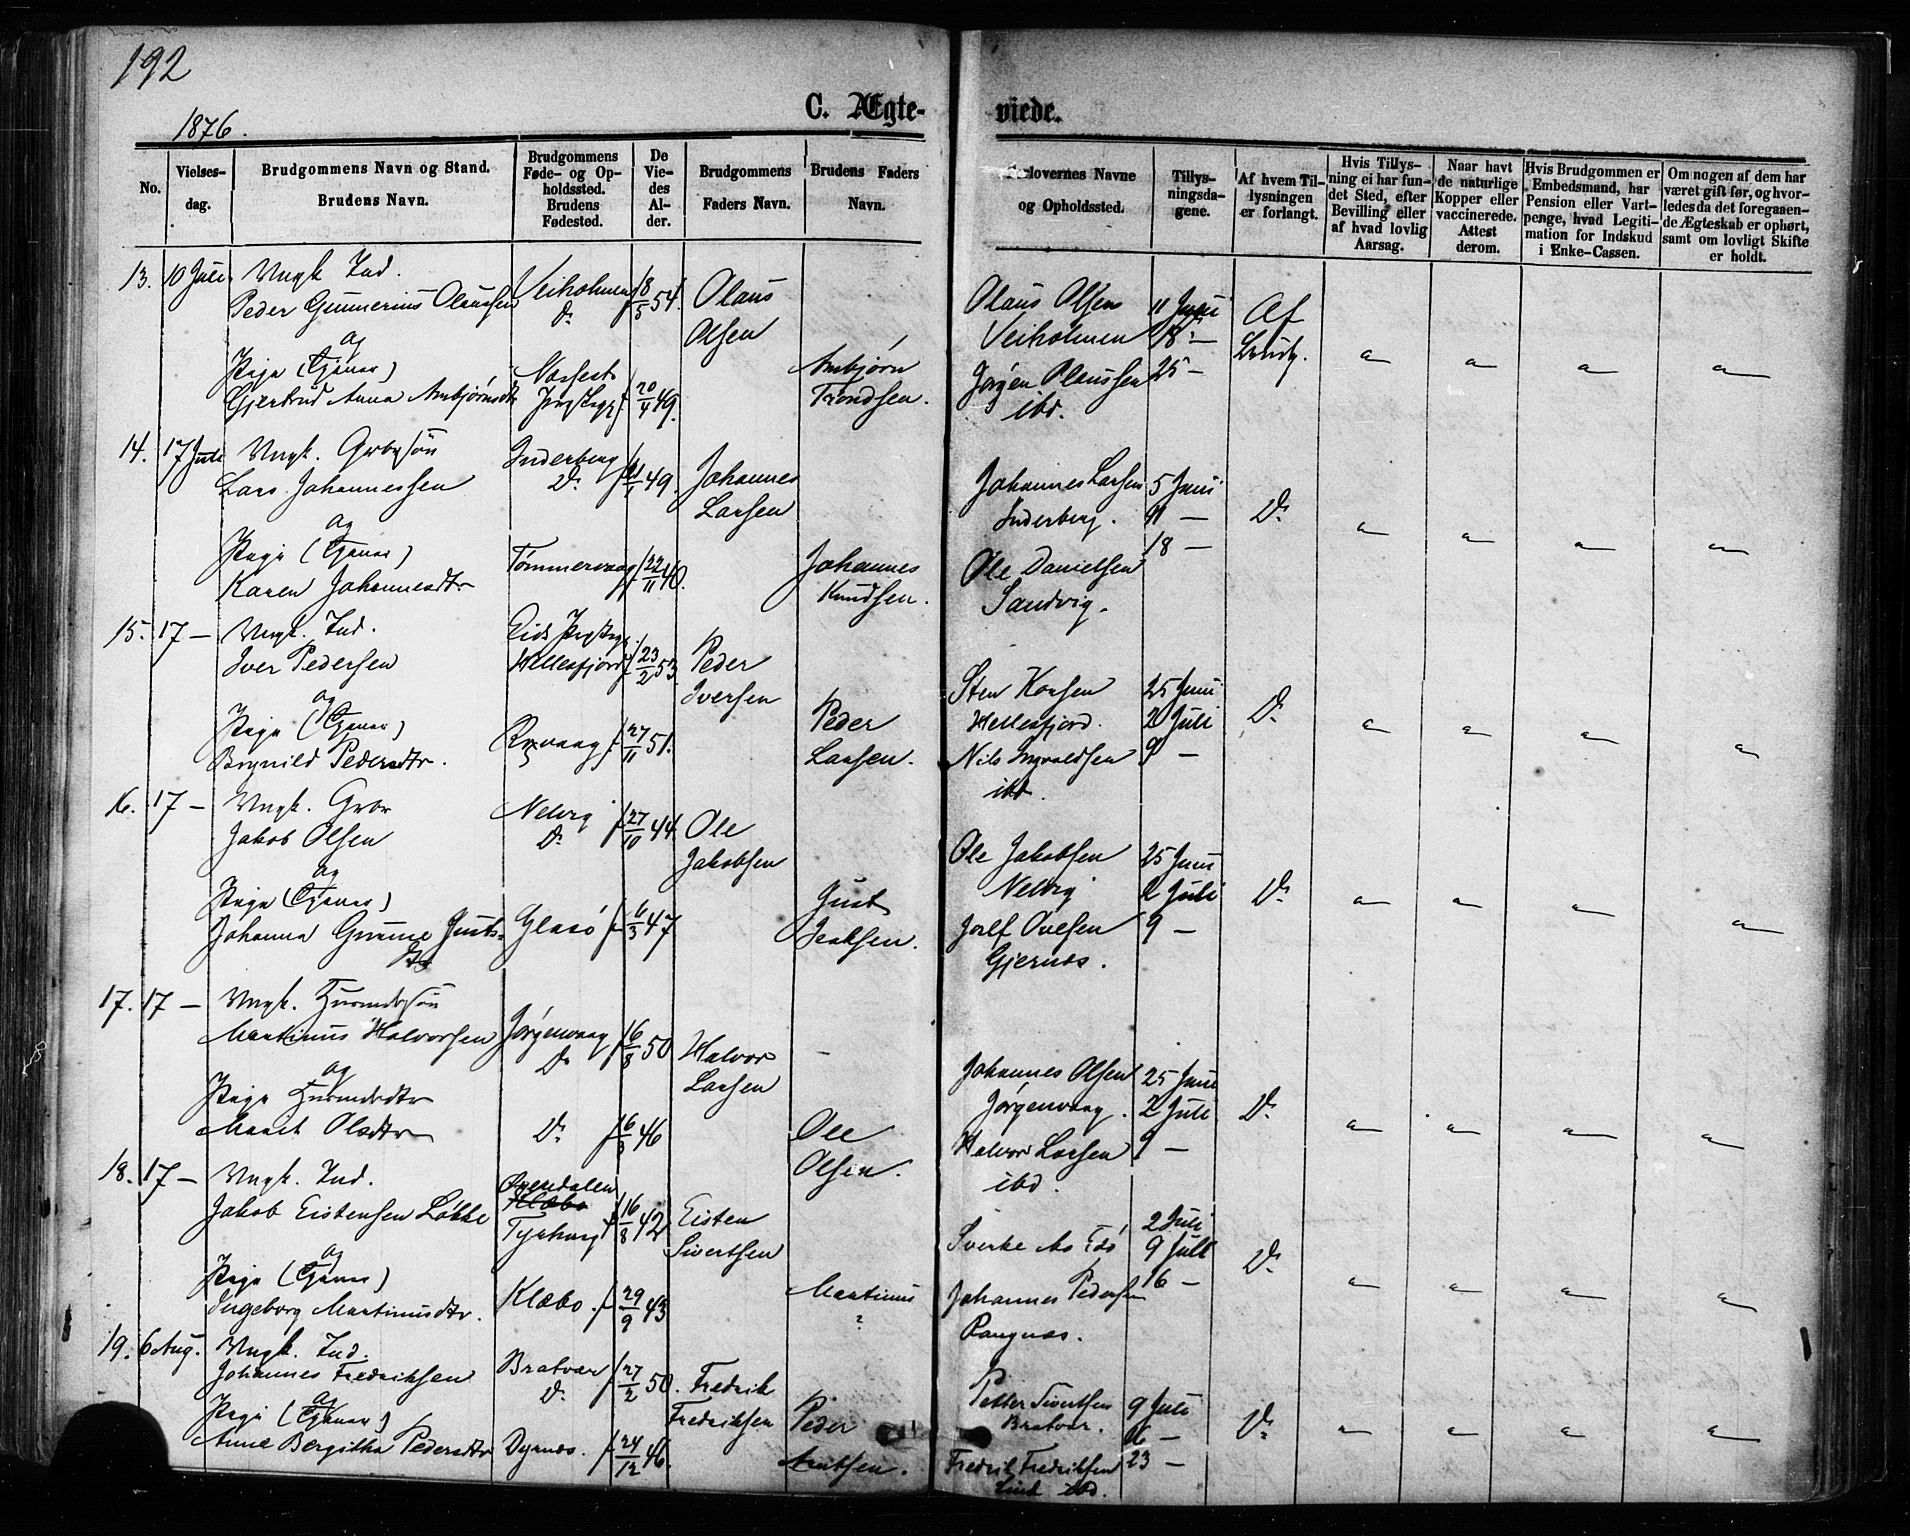 192
1876.
C. Ægte-
viede.
No.
Vielses-
dag.
Brudgommens Navn og Stand.
Brudens Navn.
Brudgommens
Føde- og Op-
holdssted.
Brudens
Fødested.
De
Vie-
des
Al-
der.
Brudgommens
Faders Navn.
Brudens Faders
Navn.
Forlovernes Navne
og Opholdssted.
Tillys-
ningsda-
gene.
Af hvem Til-
lysningen
er forlangt.
Hvis Tillys-
ning ei har fun-
det Sted, efter
Bevilling eller
af hvad lovlig
Aarsag.
Naar havt
de naturlige
Kopper eller
vaccinerede.
Attest
derom.
Hvis Brudgommen er
Embedsmand, har
Pension eller Vart-
penge, hvad Legiti-
mation for Indskud
i Enke-Cassen.
Om nogen af dem har
været gift før, og hvor-
ledes da det foregaaen-
de Ægteskab er ophørt,
samt om lovligt Skifte
er holdt.
13. 10 Juli Ungk. Ind. Veiholmen f 18/5 54. Olaus
Peder Gunnerius Olaussen D. Olsen
og
Pige (Tjener) Arnbjørn
Gjertrud Anna Arnbjørnsdtr f 20/4 49. Trondsen.
Olaus Olsen 11 Juni Af
Veiholmen 18 —
Jørgen Olaussen 25 —
ibd.
14. 17 Juli Ungk. Grbrsøn Inderberg Johannes
Lars Johannessen D. 49. Larsen
og
Pige (Tjener) Tømmervaag f 22/11 40. Johannes
Karen Johannesdtr Knudsen.
Johannes Larsen 5 Juni D.
Inderberg. 11 —
18 —
Ole Danielsen
Sandvig.
15. 17 — Ungk. Ind. Eids Prgstg.
Iver Pedersen Hellesfjord f 23/2 53. Peder
Iversen
og
Pige (Tjener) f 27/11 51. Peder
Brynild Pedersdtr. Larsen.
Sten Larsen 25 Juni
Hellesfjord. 2 Juli D.
Nils Ingvaldsen 9 —
ibd.
16. 17 — Ungk. Grbr Nelvig f 27/10 44. Ole
Jakob Olsen D. Jakobsen
og
Pige (Tjener) Just
Johanna Gurine Justs- Glasø f 6/3 47
dtr
Ole Jakobsen 25 Juni
Nelvig 2 Juli D.
Ovesen 9 —
Gjernes.
17. 17 — Ungk. Husmdssøn
Martinus Halvorsen Jørgenvaag f 16/8 50 Halvor
D. Larsen
og
Pige Husmdsdtr
Marit Olsdtr D. f 6/3 46 Ole
Olsen.
Johannes Olsen 25 Juni
Jørgenvaag. 2 Juli D.
Halvor Larsen 9 —
ibd.
18. 17 — Ungk. Ind. Ovendalen
Klæbo
Jakob Eistensen Løkke f 16/8 42 Eisten
Sivertsen
og
Pige (Tjener) Klæbo. f 29/9 43 Martinus
Ingeborg Martinusdtr. ?
2 Juli
9 Juli D.
Johannes Pedersen 16 —
19. 6 Aug. Ungk. Ind. Bratvær f 27/2 50. Fredrik
Johannes Fredriksen D. Fredriksen
og
Pige (Tjener) Peder
Anne Bergitha Pedersdtr Dyrnes. f 24/12 46. Arntsen.
Petter Sivertsen 9 Juli
Bratvær. 16 — D.
Fredrik Fredriksen 23 —
ibd.